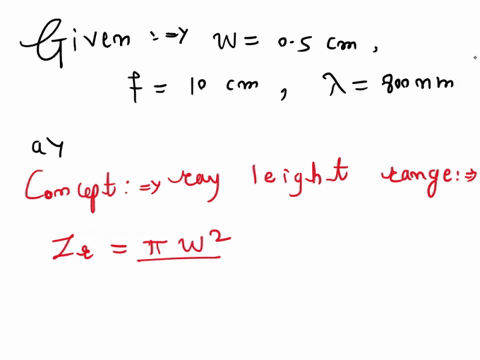 Given :⇒ w = 0.5 cm,
f = 10 cm, λ = 800nm
a)
Concept :⇒ ray leight range :⇒
Zr = π w²